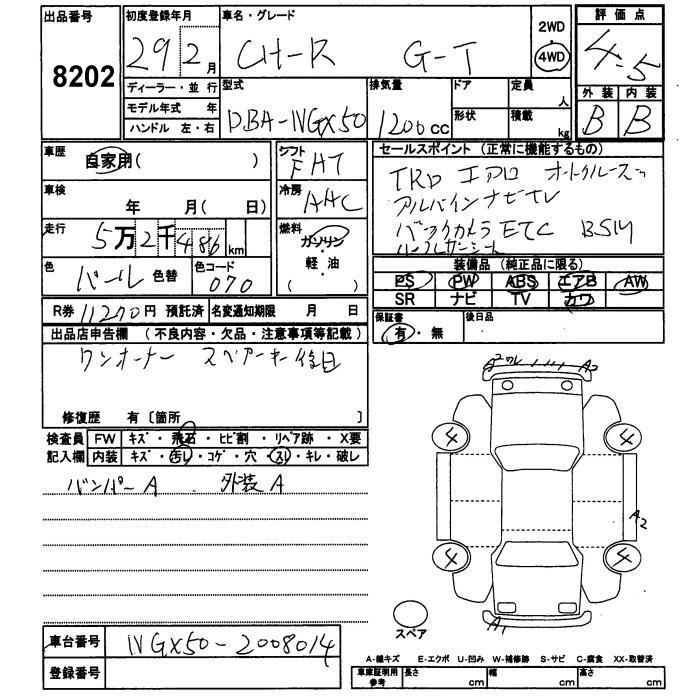 出品番号 8202
初度登録年月 29 2月
車名・グレード C-HR G-T
2WD
4WD
評価点 4.5
外装 B
内装 B
ディーラー・並行
モデル年式 年
ハンドル 左・右
型式 DBA-NGX50
排気量 1200cc
ドア
形状
定員 人
積載 kg
車歴 自家用( )
車検 年 月( 日)
走行 5万2千486km
色 パール 色替
色コード 070
シフト FAT
冷房 AAC
燃料 ガソリン・軽油
( )
セールスポイント (正常に機能するもの)
TRD エアロ オートクルーズ
アルパインナビTV
バックカメラ ETC BSM
ハーフレザーシート
装備品 (純正品に限る)
PS PW ABS エアB AW
SR ナビ TV カワ
R券 11270円 預託済
名変通知期限 月 日
保証書 有・無
後日品
出品店申告欄 (不良内容・欠品・注意事項等記載)
ワンオーナー スペアーキー後日
修復歴 有 〔箇所 〕
検査員記入欄
FW キズ・飛石・ヒビ割・リペア跡・X要
内装 キズ・汚レ・コゲ・穴・スレ・キレ・破レ
バンパーA 外装A
A2 ワレ A2
4 4
A2
4 4
A1
スペア
車台番号 NGX50-2008014
登録番号
A-線キズ E-エクボ U-凹み W-補修跡 S-サビ C-腐食 XX-取替済
車庫証明用参考 長さ cm 幅 cm 高さ cm